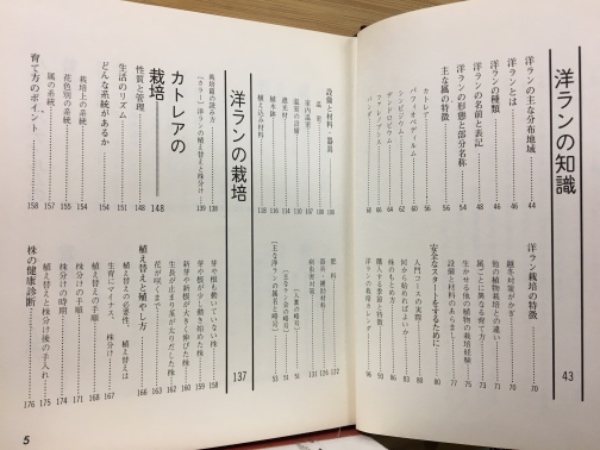 洋ランの知識 43
洋ランの主な分布地域 44
洋ランとは 46
洋ランの種類 46
洋ランの名前と表記 48
洋ランの形態と部分名称 54
主な属の特徴 56
カトレア 56
パフィオペディルム 60
シンビジウム 62
デンドロビウム 64
ファレノプシス 66
バンダ 68
洋ラン栽培の特徴 70
越冬対策がカギ 70
他の植物栽培との違い 71
属ごとに異なる育て方 73
生かせる他の植物の栽培経験 75
設備と材料のあらまし 77
安全なスタートをするために 80
入門コースの実際 80
何から始めればよいか 83
株のもとめ方 86
購入する季節と特徴 93
洋ランの栽培カレンダー 96
設備と材料・器具 108
温室 108
室内温室 107
温室の設備 110
遮光材 114
植木鉢 116
植え込み材料 118
肥料 122
器具・補助材料 126
病虫害対策 131
[人名の略号] 51
[主なラン名の略号] 91
[主な洋ランの属名と略号] 53
洋ランの栽培 137
栽培篇の読み方 138
[カラー] 洋ランの植え替えと株分け 139
カトレアの
栽培 148
性質と管理 148
生活のリズム 151
どんな系統があるか 154
栽培上の系統 154
花色別の系統 155
属の系統 157
育て方のポイント 158
芽や根も動いていない株 158
芽や根が少し動き始めた株 159
新芽や新根が大きく伸びた株 160
生長が止まり茎が太りだした株 162
花が咲くまで 163
植え替えと殖やし方 166
植え替えの必要性、植え替えは
生育にマイナス、株分け 167
植え替えの手順 168
株分けの手順 171
株分けの時期 174
植え替えと株分け後の手入れ 175
株の健康診断 176
5